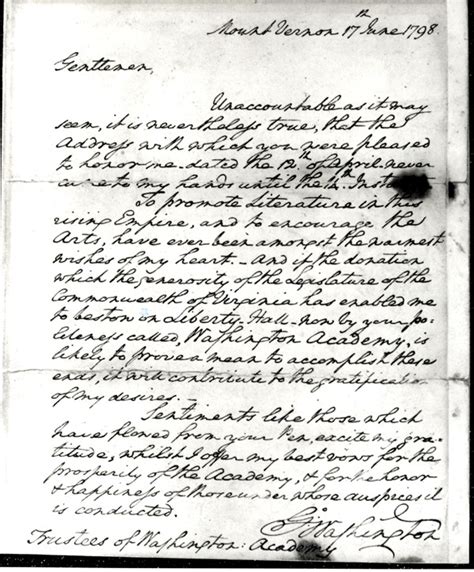 Mount Vernon 17th June 1798.
Gentlemen,
Unaccountable as it may
seem, it is nevertheless true, that the
Address with which you were pleased
to honor me dated the 12th of April never
came to my hands until the 14th Instant
To promote Literature in this
rising Empire, and to encourage the
Arts, have ever been amongst the warmest
wishes of my heart. – And if the donation
which the generosity of the Legislature of the
Commonwealth of Virginia has enabled me
to bestow on Liberty Hall – now by your po-
liteness called, Washington Academy, is
likely to prove a mean to accomplish these
ends, it will contribute to the gratification
of my desires. –
Sentiments like those which
have flowed from your Pen, excite my gra-
titude, whilst I offer my best vows for the
prosperity of the Academy, & for the honor
& happiness of those under whose auspices it
is conducted.
Go: Washington
Trustees of Washington: Academy